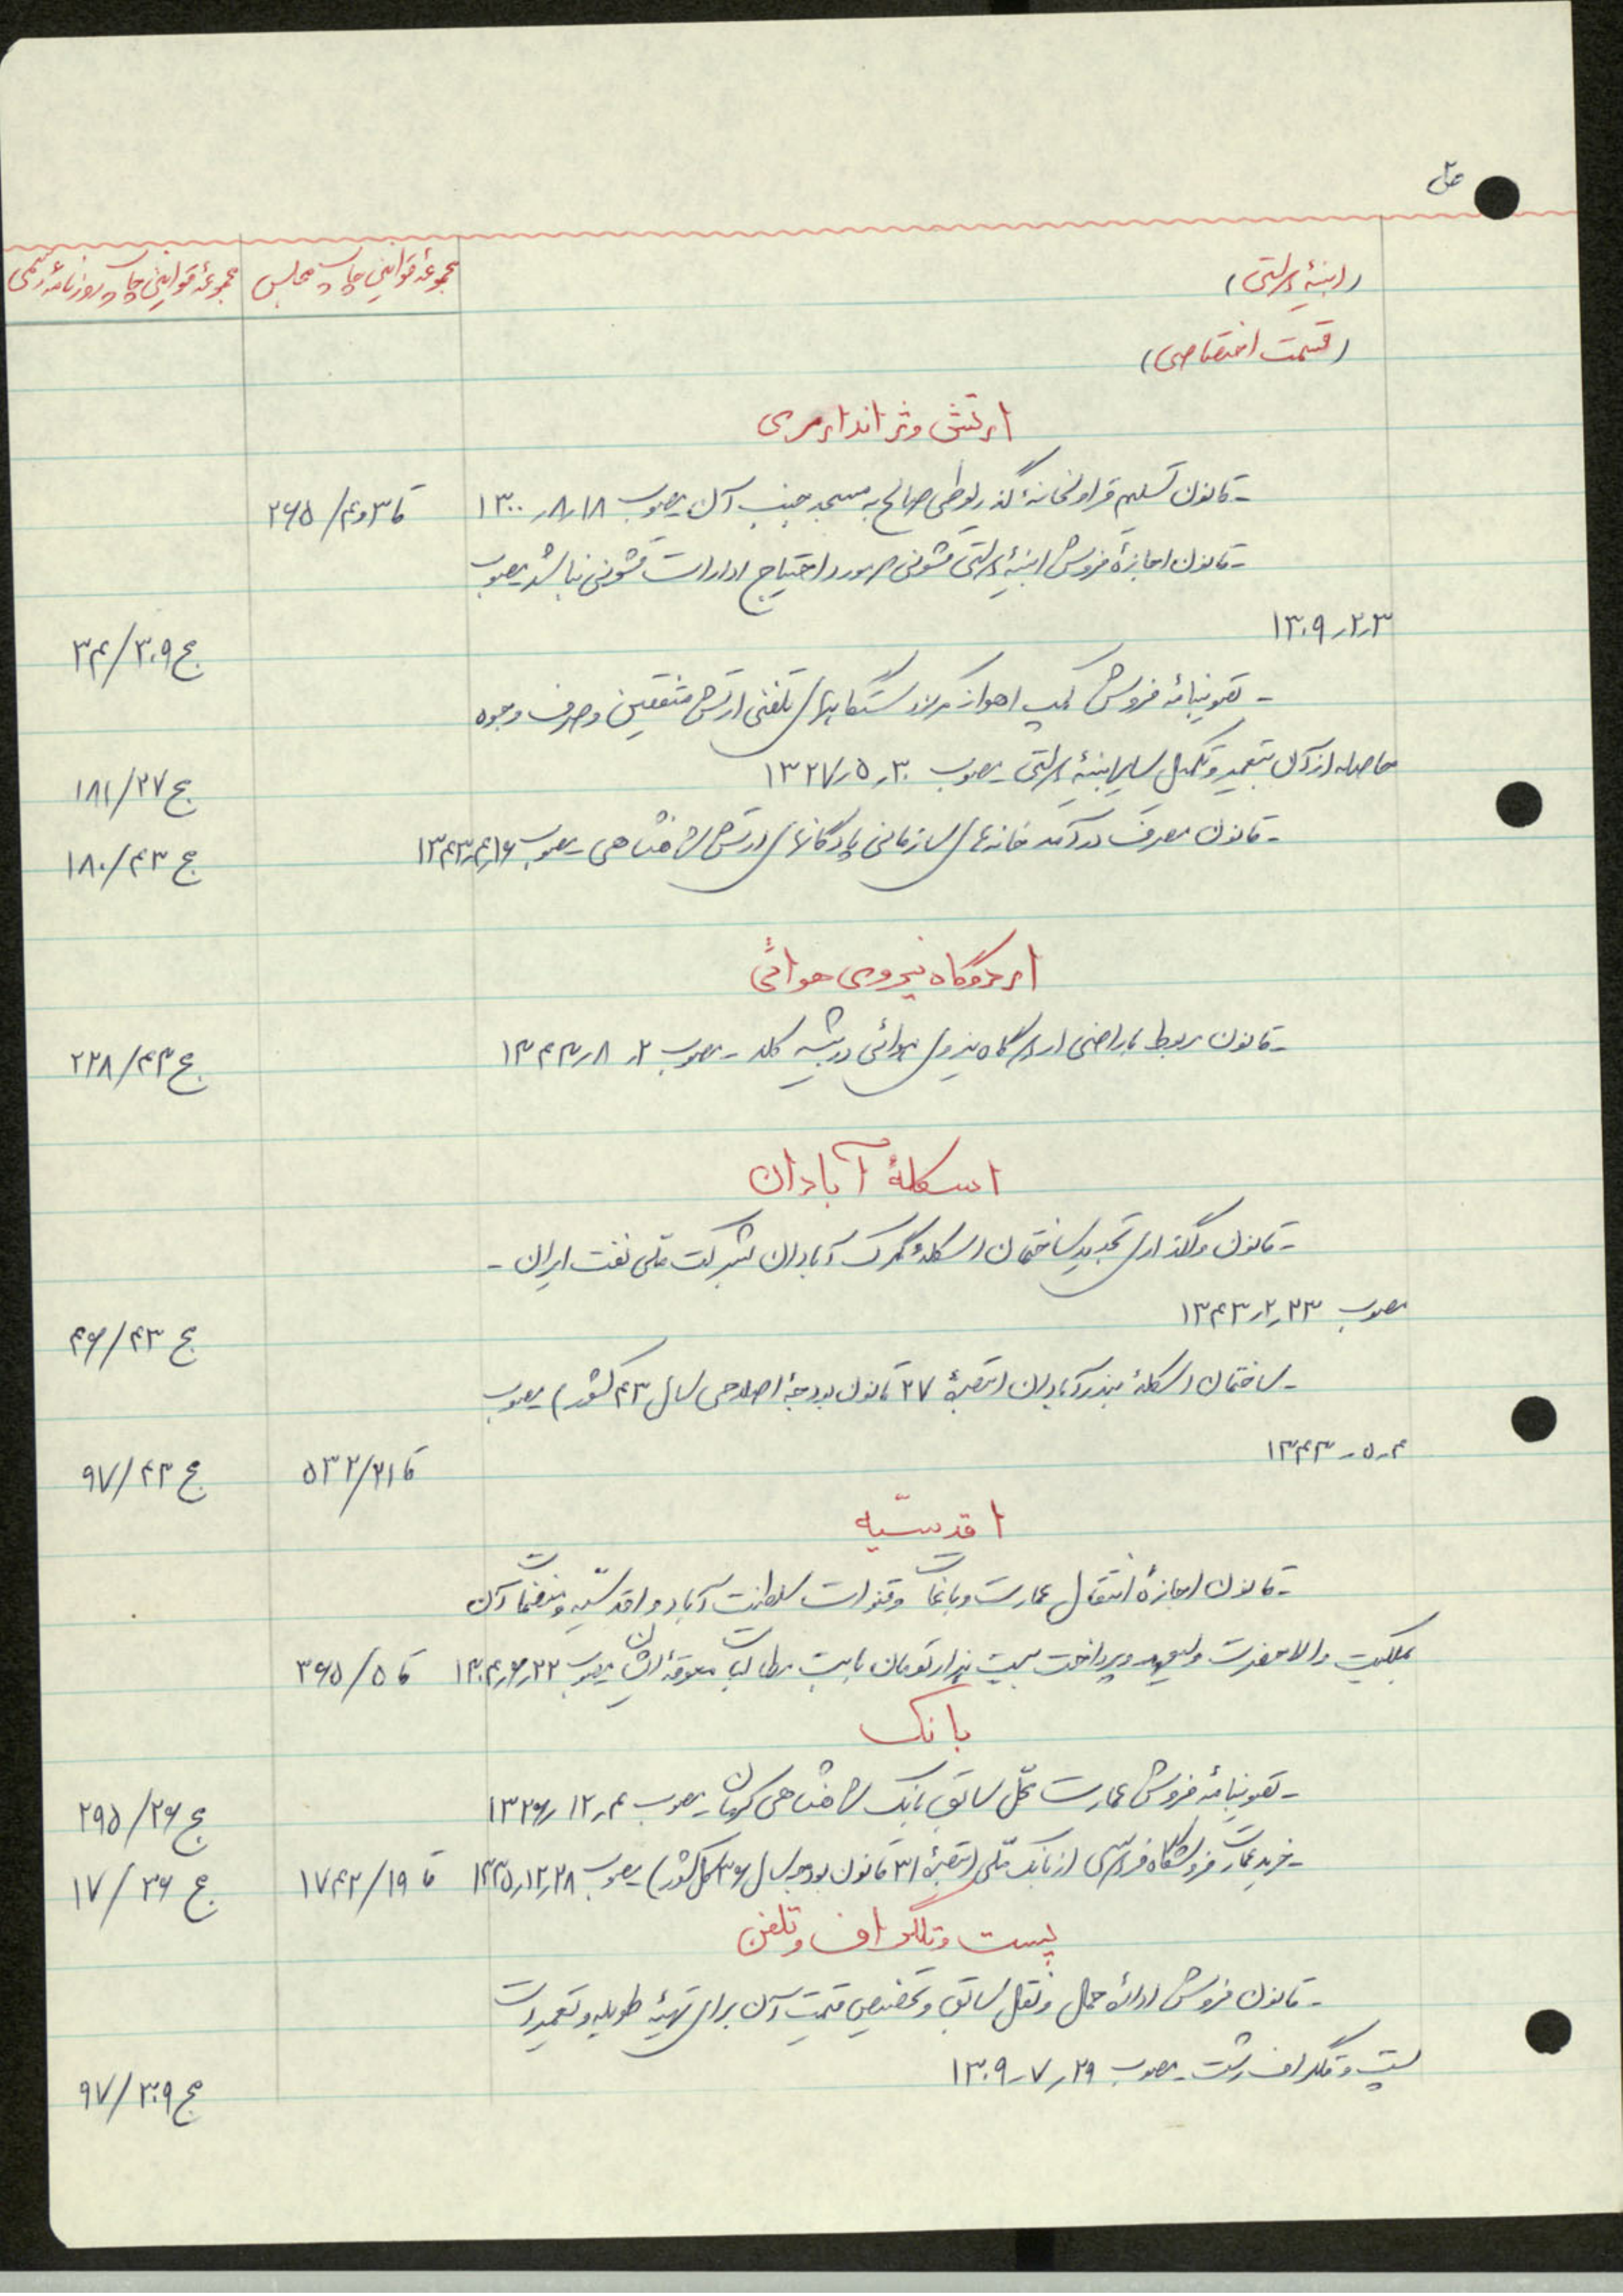 (ابنیهٔ دولتی)
مجموعهٔ قوانین چاپ مجلس
مجموعهٔ قوانین چاپ روزنامهٔ رسمی
(قسمت اختصاصی)
ارتش و ژاندارمری
- قانون تسلیم قراولخانهٔ گذر لوطی صالح به مسجد جنب آن مصوب ۱۸ر۸ر۱۳۰۰ قا ۳و۴/۲۶۵
- قانون اجازهٔ فروش ابنیهٔ دولتی قشونی مورد احتیاج ادارات قشونی نباشد مصوب
۳ر۲ر۱۳۰۹ ج ۳۰۹/۳۴
- تصویبنامهٔ فروش کمپ اهواز مرکز دستگاههای تلفنی ارتش متفقین و صرف وجوه
حاصله از آن بتعمیر و تکمیل سایر ابنیهٔ دولتی مصوب ۳۰ر۵ر۱۳۲۷ ج ۲۷/۱۸۱
- قانون مصرف درآمد خانه‌های سازمانی پادگانهای ارتش شاهنشاهی مصوب ۱۶ر۴ر۱۳۴۳ ج ۴۳/۱۸۰
اردوگاه نیروی هوائی
- قانون مربوط باراضی اردوگاه نیروی هوائی در بیشه کلا - مصوب ۲ر۸ر۱۳۴۳ ج ۴۳/۲۲۸
اسکلهٔ آبادان
- قانون واگذاری تجدید ساختمان اسکلهٔ گمرک آبادان بشرکت ملی نفت ایران -
مصوب ۲۳ر۲ر۱۳۴۳ ج ۴۳/۴۶
- ساختمان اسکلهٔ بندر آبادان (تبصرهٔ ۲۷ قانون بودجهٔ اصلاحی سال ۴۳ کشور) مصوب
۴ر۵ر۱۳۴۳ قا ۲۱/۵۳۲ ج ۴۳/۹۷
اقدسیّه
- قانون اجازهٔ انتقال عمارت و باغات و قنوات سلطنت آباد و اقدسیّه و منضمات آن
بملکیت والاحضرت ولیعهد و پرداخت بیست هزار تومان بابت مطالبات معوقهٔ ایشان مصوب ۲۲ر۶ر۱۳۰۴ قا ۵/۳۶۵
بانک
- تصویبنامهٔ فروش عمارت محلّ سابق بانک شاهنشاهی کرمان - مصوب ۴ر۱۲ر۱۳۲۶ ج ۲۶/۲۹۵
- خرید عمارت فروشگاه فردوسی از بانک ملّی (تبصرهٔ ۳۱ قانون بودجه سال ۳۶ کل کشور) مصوب ۲۸ر۱۲ر۱۳۳۵ قا ۱۹/۱۷۴۲ ج ۳۶/۱۷
پست و تلگراف و تلفن
- قانون فروش ادارهٔ حمل و نقل سابق و تخصیص قیمت آن برای تهیهٔ طویله و تعمیرات
پست و تلگراف رشت مصوب ۲۹ر۷ر۱۳۰۹ ج ۳۰۹/۹۷